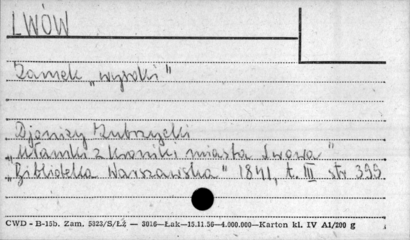 LWÓW
Zamek „wysoki"
Djonizy Zubrzycki
„Ułamki z kroniki miasta Lwowa"
„Biblioteka Warszawska" 1841, t. III str 399
CWD - B-15b. Zam. 5323/S/Łż — 3016—Łak—15.11.56—4.000.000—Karton kl. IV A1/200 g